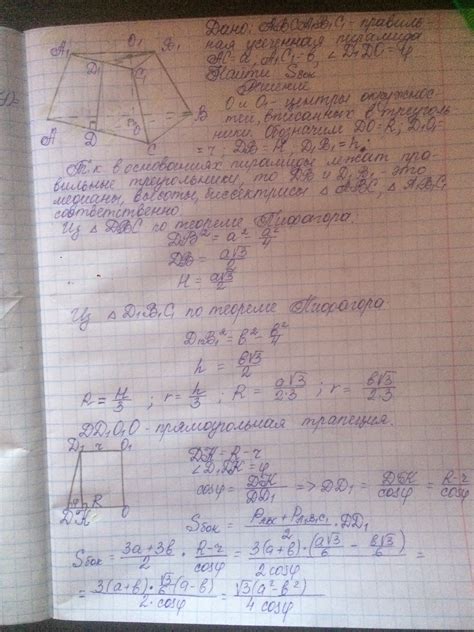 Дано: ABCA₁B₁C₁ – правиль-
ная усечённая пирамида
AC=a, A₁C₁=b, ∠D₁DO=φ
Найти Sбок
Решение
O и O₁ – центры окружнос-
тей, вписанных в треуголь-
ники. Обозначим DO=R, D₁O₁=
=r; DB=H, D₁B₁=h.
Т.к в основаниях пирамиды лежат пра-
вильные треугольники, то DB и D₁B₁ – это
медианы, высоты, биссектрисы △ABC △A₁B₁C₁
соответственно.
Из △DBC по теореме Пифагора.
DB² = a² - a²/4
DB = a√3/2
H = a√3/2
Из △D₁B₁C₁ по теореме Пифагора
D₁B₁² = b² - b²/4
h = b√3/2
R = H/3 ; r = h/3 ; R = a√3/2·3 ; r = b√3/2·3
DD₁O₁O – прямоугольная трапеция.
DK = R - r
∠D₁DK = φ
cosφ = DK/DD₁ => DD₁ = DK/cosφ = R-r/cosφ
Sбок = PABC + PA₁B₁C₁/2 · DD₁
Sбок = 3a+3b/2 · R-r/cosφ = 3(a+b)·(a√3/6 - b√3/6)/2cosφ =
= 3(a+b)·√3/6(a-b)/2·cosφ = √3(a²-b²)/4cosφ
A₁ O₁ B₁
D₁ C₁
A D O C B
D₁ r O₁
D K R O